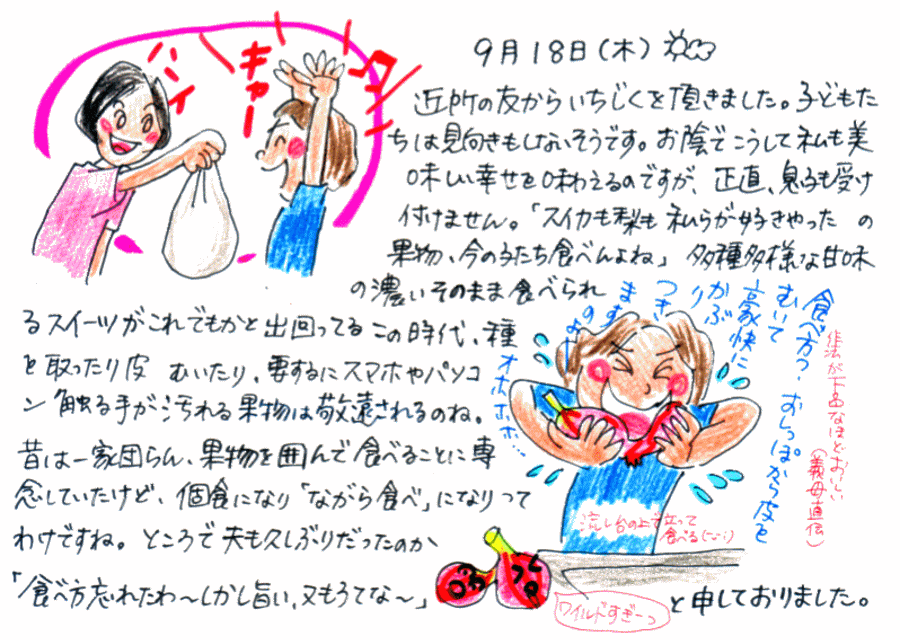 9月18日(木)
近所の友からいちじくを頂きました。子どもた
ちは見向きもしないそうです。お陰でこうして私も美
味しい幸せを味わえるのですが、正直、息子も受け
付けません。「スイカも梨も私らが好きやった の
果物、今の子たち食べんよね」多種多様な甘味
の濃いそのまま食べられ
るスイーツがこれでもかと出回ってるこの時代、種
を取ったり皮 むいたり、要するにスマホやパソコ
ン触る手が汚れる果物は敬遠されるのね。
昔は一家団らん、果物を囲んで食べることに専
念していたけど、個食になり「ながら食べ」になりって
わけですね。ところで夫も久しぶりだったのか
「食べ方忘れたわ～しかし旨い、又もろてな～」
と申しておりました。
ハイ
キャー
食べ方っ・おしっぽから皮を
むいて
豪快に
かぶ
り
つき
ます
のよ
オホホホ…
作法が下品なほどおいしい
(義母直伝)
流し台の上で立って
食べる(なり)
ワイルドすぎーっ